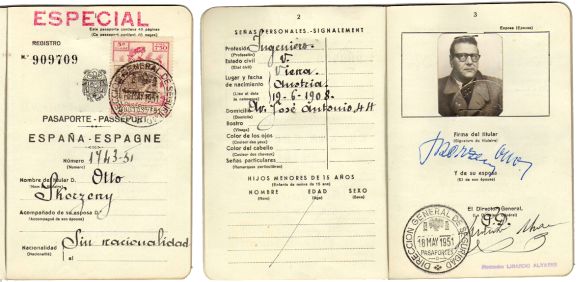 ESPECIAL
Este pasaporte contiene 40 páginas
REGISTRO
N.º 909709
PASAPORTE - PASSEPORT
ESPAÑA - ESPAGNE
Número 1743-51
Nombre del titular D. Otto
Skorzeny
Acompañado de su esposa D.ª
(Accompagné de son épouse)
Nacionalidad Sin nacionalidad
(Nationalité)
2
SEÑAS PERSONALES.-SIGNALEMENT
Profesión Ingeniero
(Profession)
Estado civil V.
(Etat civil)
Lugar y fecha Viena
de nacimiento Austria
(Lieu et date de naissance) 19-6-1908
Domicilio Av. José Antonio, 44
Rostro
(Visage)
Color de los ojos
(Couleur des yeux)
Color del cabello
(Couleur des cheveux)
Señas particulares
HIJOS MENORES DE 15 AÑOS
(Enfants de moins de 15 ans)
NOMBRE EDAD SEXO
(Nom) (Age) (Sexe)
3
Esposa (Epouse)
Firma del titular
(Signature du titulaire)
Y de su esposa
(Et de son épouse)
El Director General,
DIRECCION GENERAL DE SEGURIDAD
18 MAY 1951
PASAPORTES